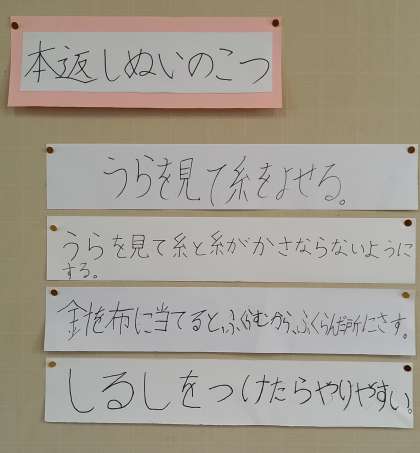 本返しぬいのこつ
うらを見て糸をよせる。
うらを見て糸と糸がかさならないように
する。
針を布に当てると、ふくらむから、ふくらんだ所にさす。
しるしをつけたらやりやすい。